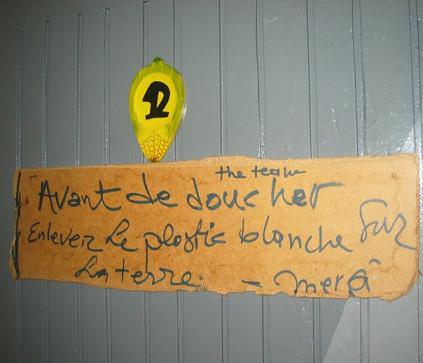 2
the team
Avant de doucher
Enlever le plastic blanche sur
la terre. - mersi